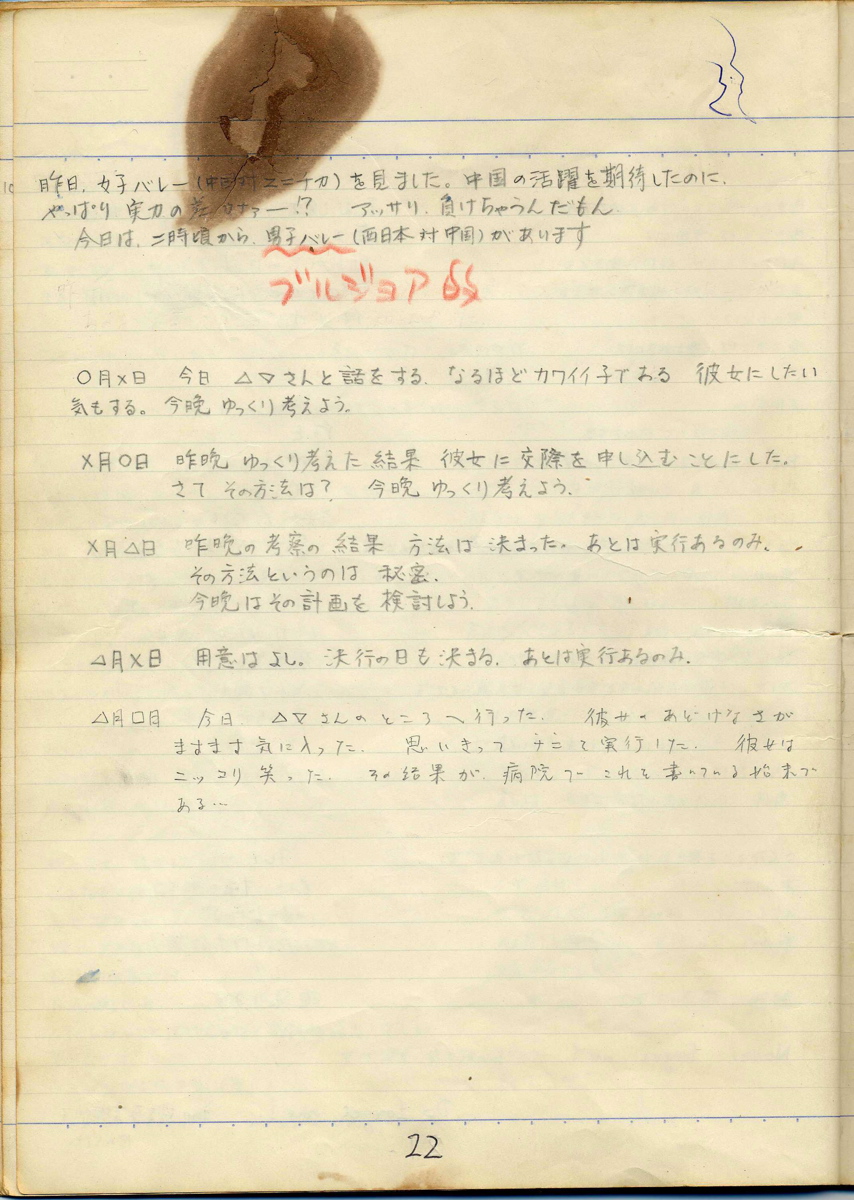 昨日、女子バレー(中国対ユニチカ)を見ました。中国の活躍を期待したのに、
やっぱり 実力の差かナァー!? アッサリ、負けちゃうんだもん。
今日は、二時頃から、男子バレー(西日本対中国)があります
ブルジョア
○月×日 今日 △▽さんと話をする。なるほどカワイイ子である 彼女にしたい
気もする。今晩ゆっくり考えよう。
×月○日 昨晩 ゆっくり考えた 結果 彼女に 交際を申し込むことにした。
さて その方法は? 今晩 ゆっくり考えよう。
×月△日 昨晩の考察の 結果 方法は 決まった。あとは実行あるのみ。
その方法というのは 秘密。
今晩はその計画を 検討しよう。
△月×日 用意は よし。決行の日も決まる。あとは実行あるのみ。
△月□日 今日 △▽さんのところへ行った。 彼女のあどけなさが
ますます気に入った。 思いきって 実行した。 彼女は
ニッコリ 笑った。 その結果が、病院で これを書いている始末で
ある…
22